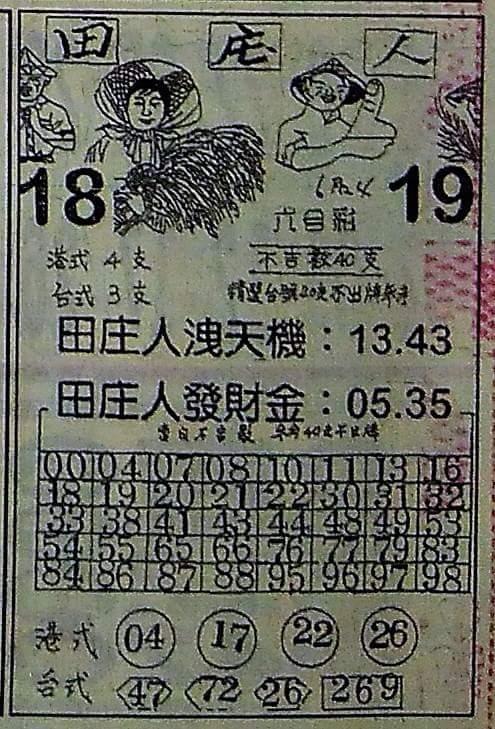 田 庄 人
18 19
六合彩
港式 4 支
不吉數40支
台式 3 支
田庄人洩天機：13.43
田庄人發財金：05.35
00 04 07 08 10 11 13 16
18 19 20 21 22 30 31 32
33 38 41 43 44 48 49 53
54 55 65 66 76 77 79 83
84 86 87 88 95 96 97 98
港式 04 17 22 26
台式 47 72 26 269